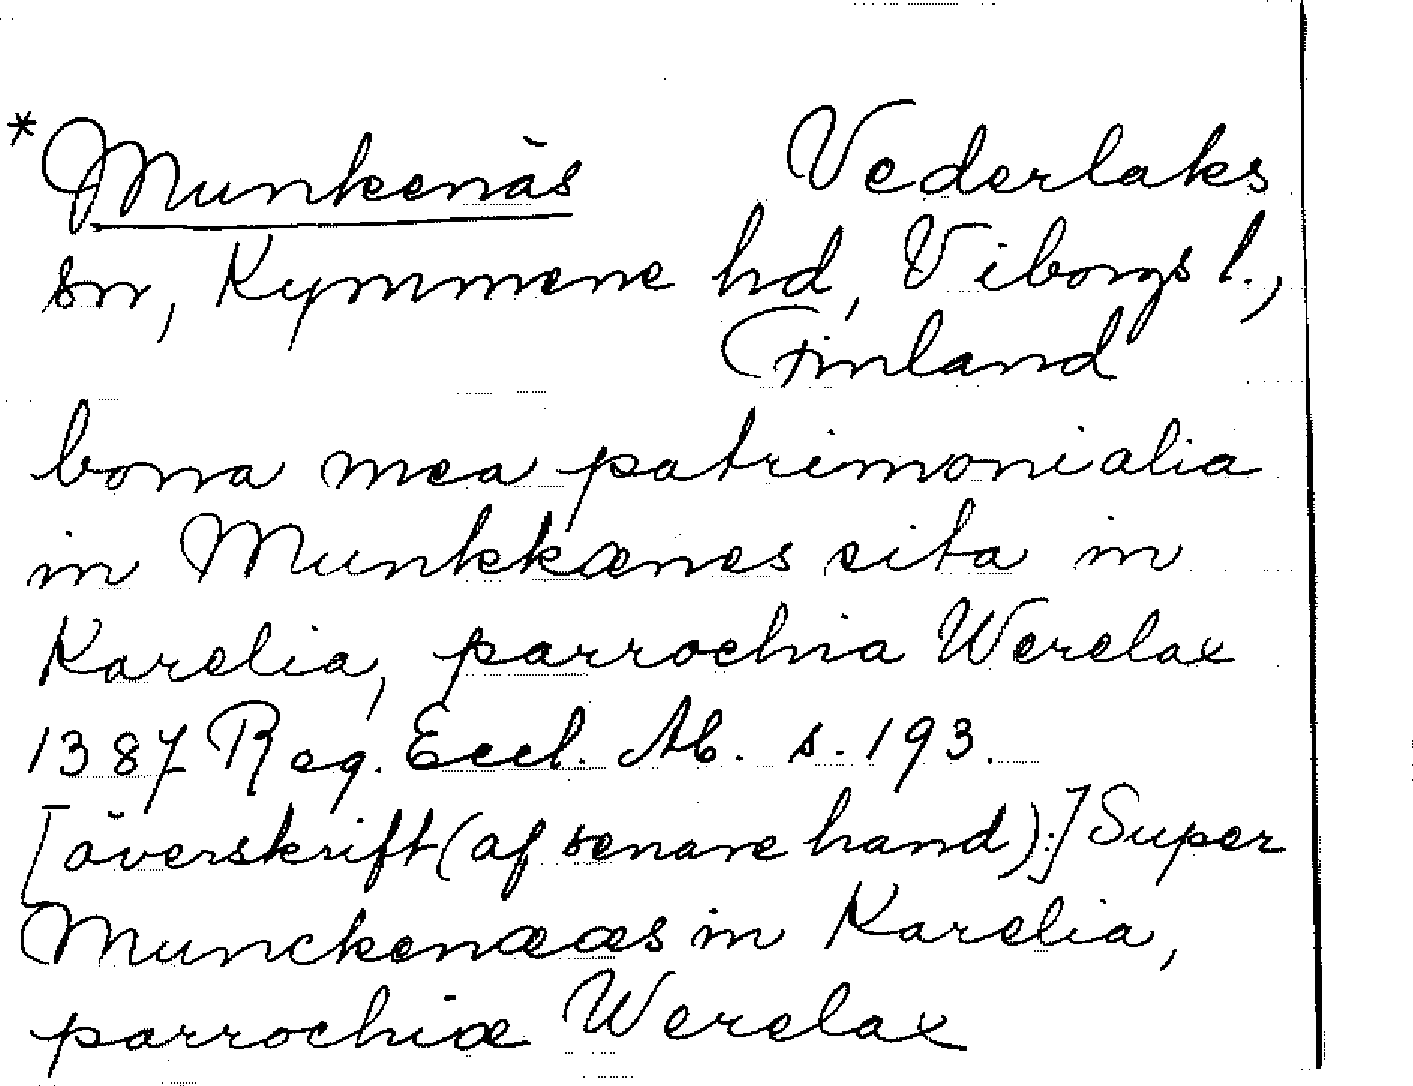 *Munkenäs Vederlaks
sn, Kymmene hd, Viborgs l.,
Finland
bona mea patrimonialia
in Munkkænes sita in
Karelia, parrochia Werelax
1387 Reg. Eccl. Ab. s. 193.
[överskrift (af senare hand):] Super
Munckenææs in Karelia,
parrochiæ Werelax